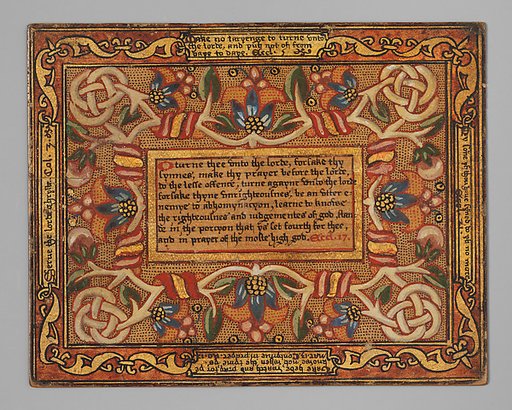 Make no taryenge to turne vnto
the lorde, and put not of from
daye to daye. Eccl. 5
O turne thee vnto the lorde, forsake thy
synnes, make thy prayer before the lorde,
do the lesse offence, turne agayne vnto the lorde
forsake thyne vnrighteousnes, be an vtter e
nemye to abhominacyon, learne to knowe
the righteousnes and iudgementes of god, stan
de in the porcyon that ys set fourth for thee,
and in prayer of the moste high god. Eccl. 17.
Serue the lorde christe, Col. 3.
Take hede, watch and pray, for ye
knowe not when the tyme